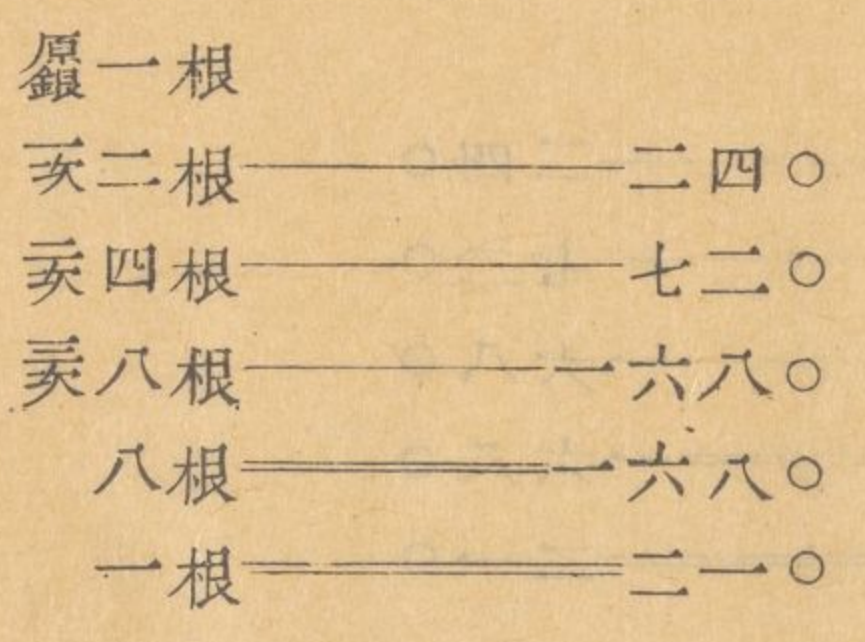 原銀一根
一次二根———二四〇
二次四根———七二〇
三次八根———一六八〇
八根═══一六八〇
一根═══二一〇